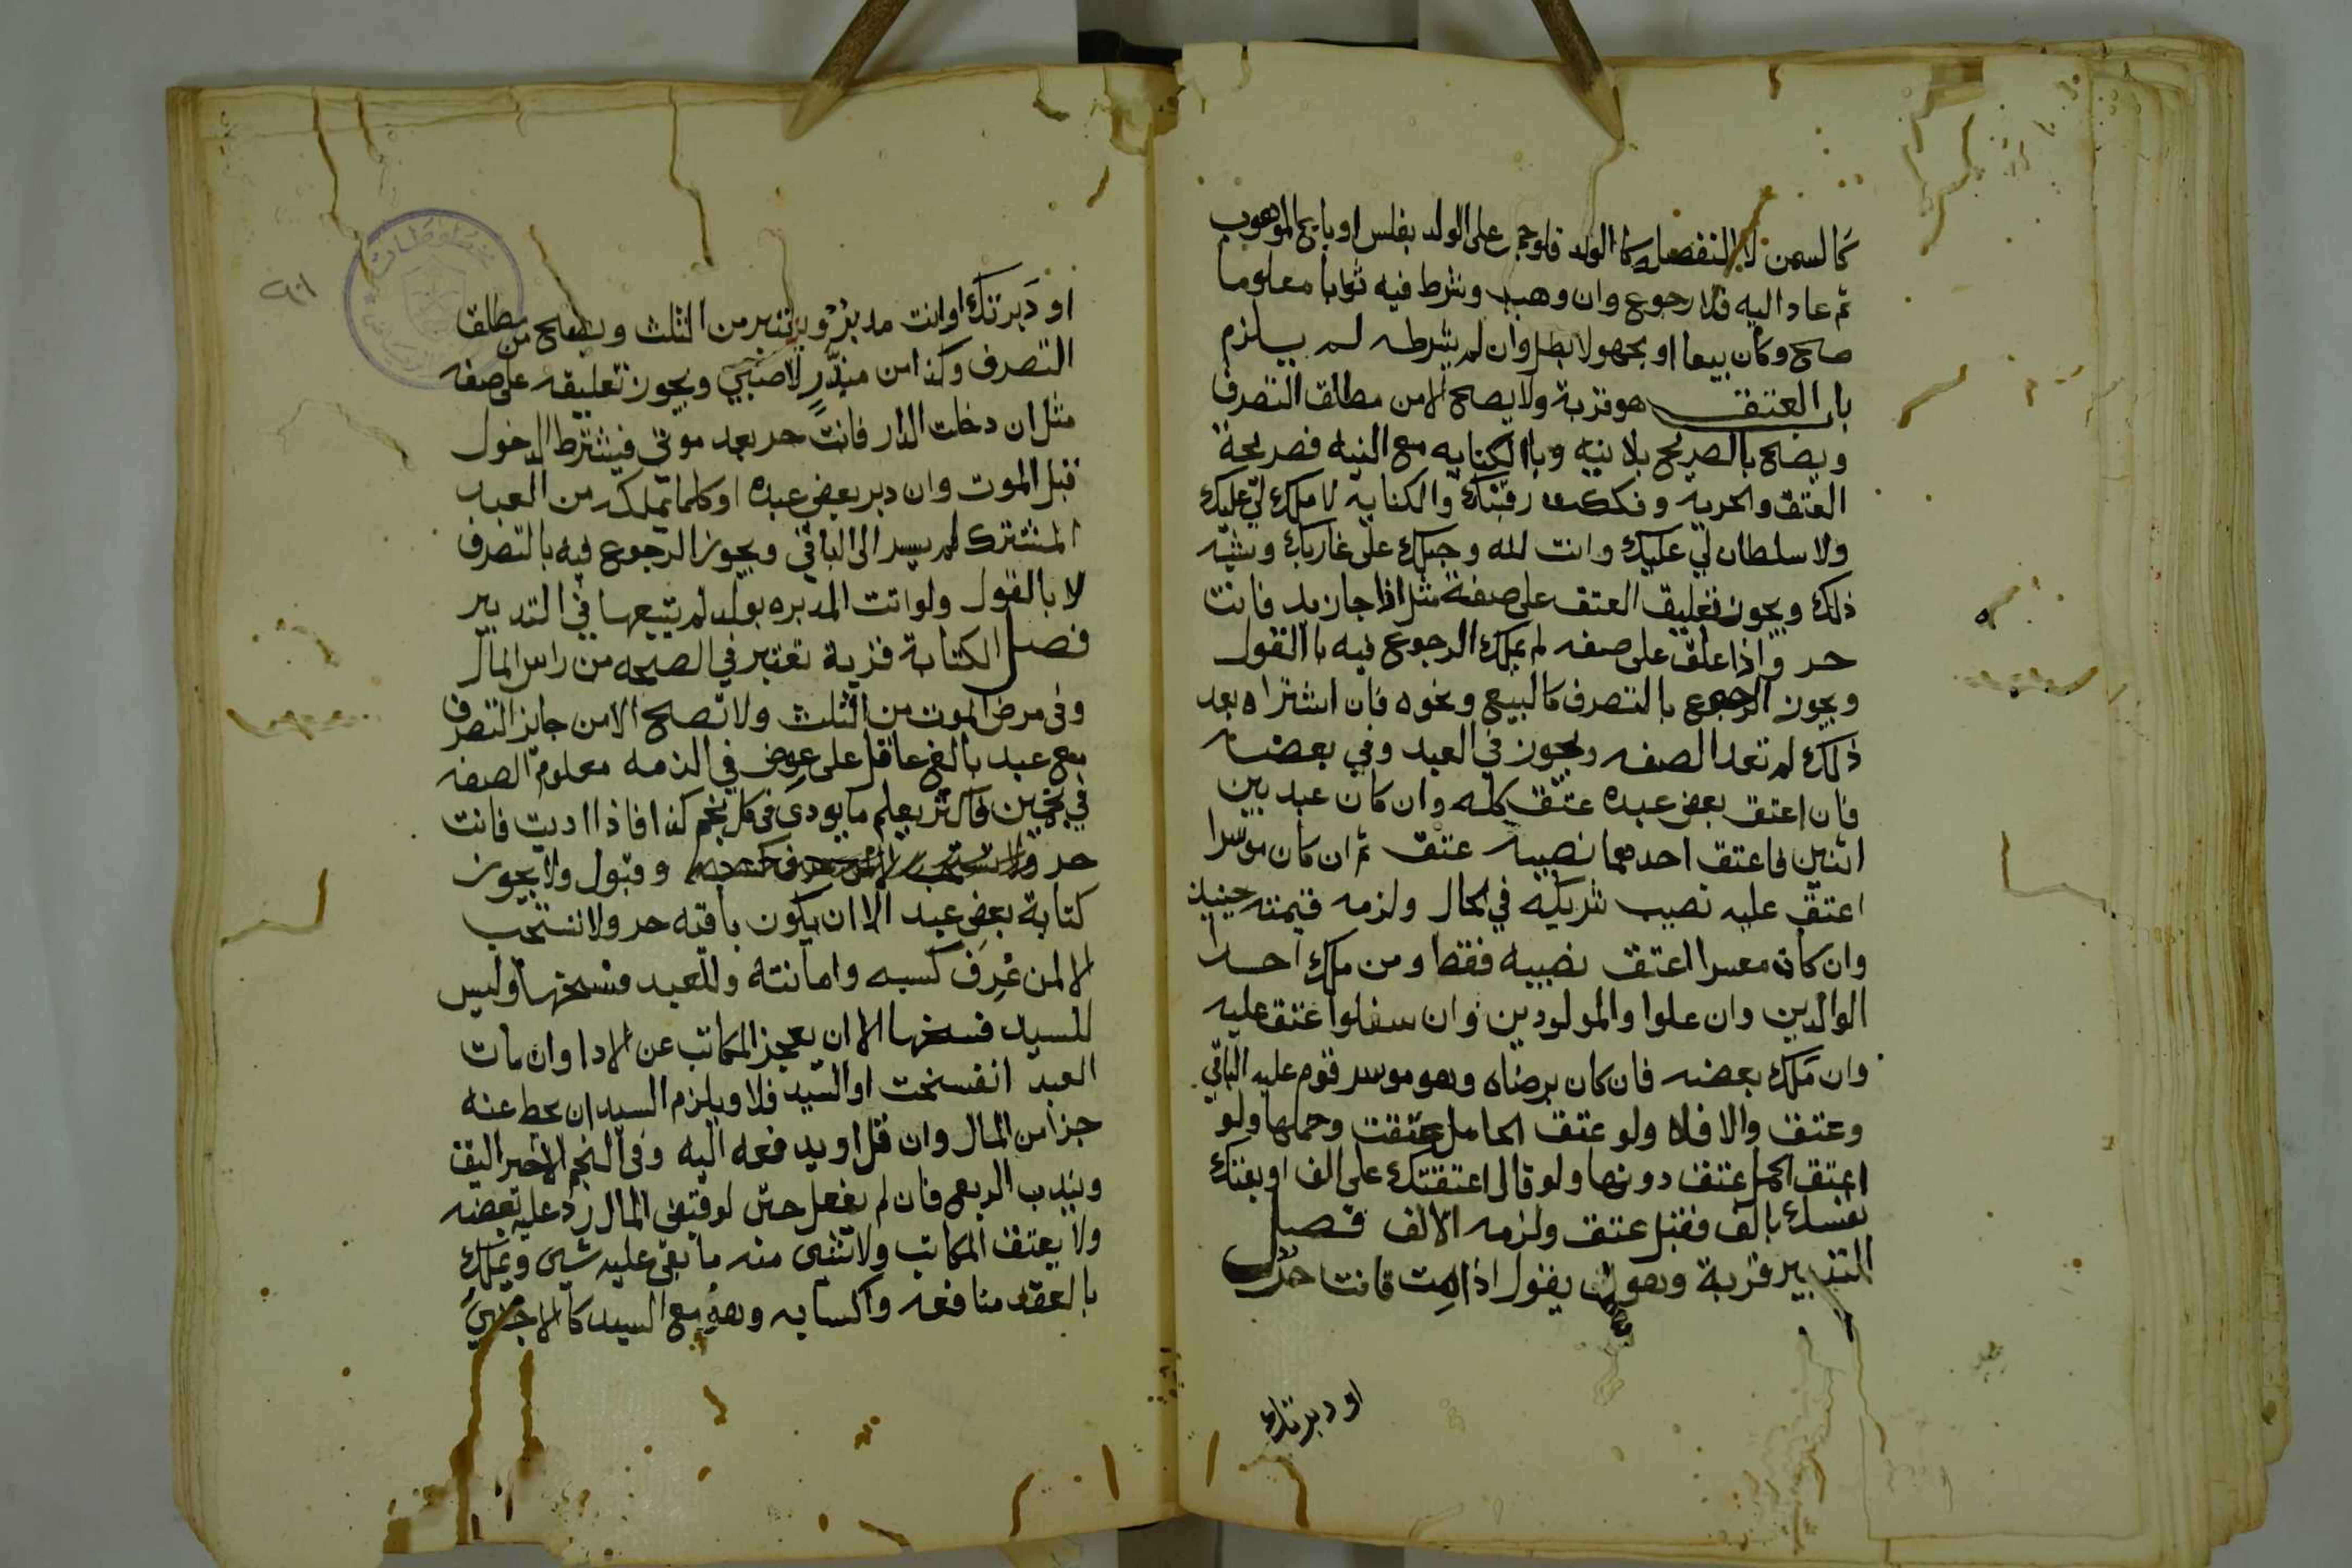 كالسمن لا المنفصله كا الولد فلو حجر على الولد بفلس او باع الموهوب
ثم عاد اليه فلا رجوع وان وهب وشرط فيه ثوابا معلوما
صح وكان بيعا او مجهولا بطل وان لم يشرطه لم يلزم
باب العتق هو قربة ولا يصح الا من مطلق التصرف
ويصح بالصريح بلا نيه وبا الكنايه مع النيه فصريحة
العتق والحريه وفككت رقبتك والكنايه لا ملك لي عليك
ولا سلطان لي عليك وانت لله وحبلك على غاربك وشبه
ذلك ويجوز تعليق العتق على صفة مثل اذا جا زيد فانت
حر واذا علق على صفه لم يملك الرجوع فيه با القول
ويجوز الرجوع بالتصرف كالبيع ونحوه فان اشتراه بعد
ذلك لم تعد الصفه ويجوز في العبد وفي بعضه
فان اعتق بعض عبده عتق كله وان كان عبد بين
اثنين فاعتق احدهما نصيبه عتق ثم ان كان موسرا
اعتق عليه نصيب شريكه في الحال ولزمه قيمته حينيذ
وان كان معسرا عتق نصيبه فقط ومن ملك احد
الوالدين وان علوا والمولودين وان سفلوا عتق عليه
وان ملك بعضه فان كان برضاه وهو موسر قوم عليه الباقي
وعتق والا فلا ولو عتق الحامل عتقت وحملها ولو
اعتق الحمل عتق دونها ولو قال اعتقتك على الف او بعتك
نفسك بالف فقبل عتق ولزمه الالف فصل
التدبير قربة وهو ان يقول اذا مت فانت حر
او دبرتك
او دَبرتك او انت مدبر ويعتبر من الثلث ويصح من مطلق
التصرف وكذا من مبذر لا صبي ويجوز تعليقه على صفه
مثل ان دخلت الدار فانت حر بعد موتي فيشترط الدخول
قبل الموت وان دبر بعض عبده او كلما يملكه من العبد
المشترك لم يسر الى الباقي ويجوز الرجوع فيه بالتصرف
لا بالقول ولو اتت المدبره بولد لم يتبعها في التدبير
فصل الكتابة قربة تعتبر في الصحه من راس المال
وفي مرض الموت من الثلث ولا تصح الا من جايز التصرف
مع عبد بالغ عاقل على عوض في الذمه معلوم الصفه
في نجمين فاكثر يعلم ما يودى في كل نجم كذا فاذا اديت فانت
حر وقبول ولا يجوز
كتابة بعض عبد الا ان يكون باقيه حر ولا تستحب
الا لمن عُرِف كسبه وامانته وللعبد فسخها وليس
للسيد فسخها الا ان يعجز المكاتب عن الادا وان مات
العبد انفسخت او السيد فلا ويلزم السيد ان يحط عنه
جزا من المال وان قل او يدفعه اليه وفي النجم الاخير اليق
ويندب الربع فان لم يفعل حتى لو قبض المال رد عليه بعضه
ولا يعتق المكاتب ولا شى منه ما بقى عليه شى ويملك
بالعقد منافعه واكسابه وهو مع السيد كالاجنبي